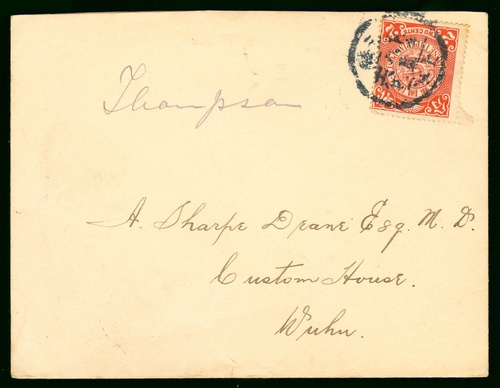 Thompson
A. Sharpe Deane Esq. M. D.
Custom House.
Wuhu.